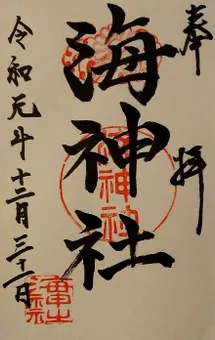 奉拝
海神社
令和元年十二月三十一日
海神社